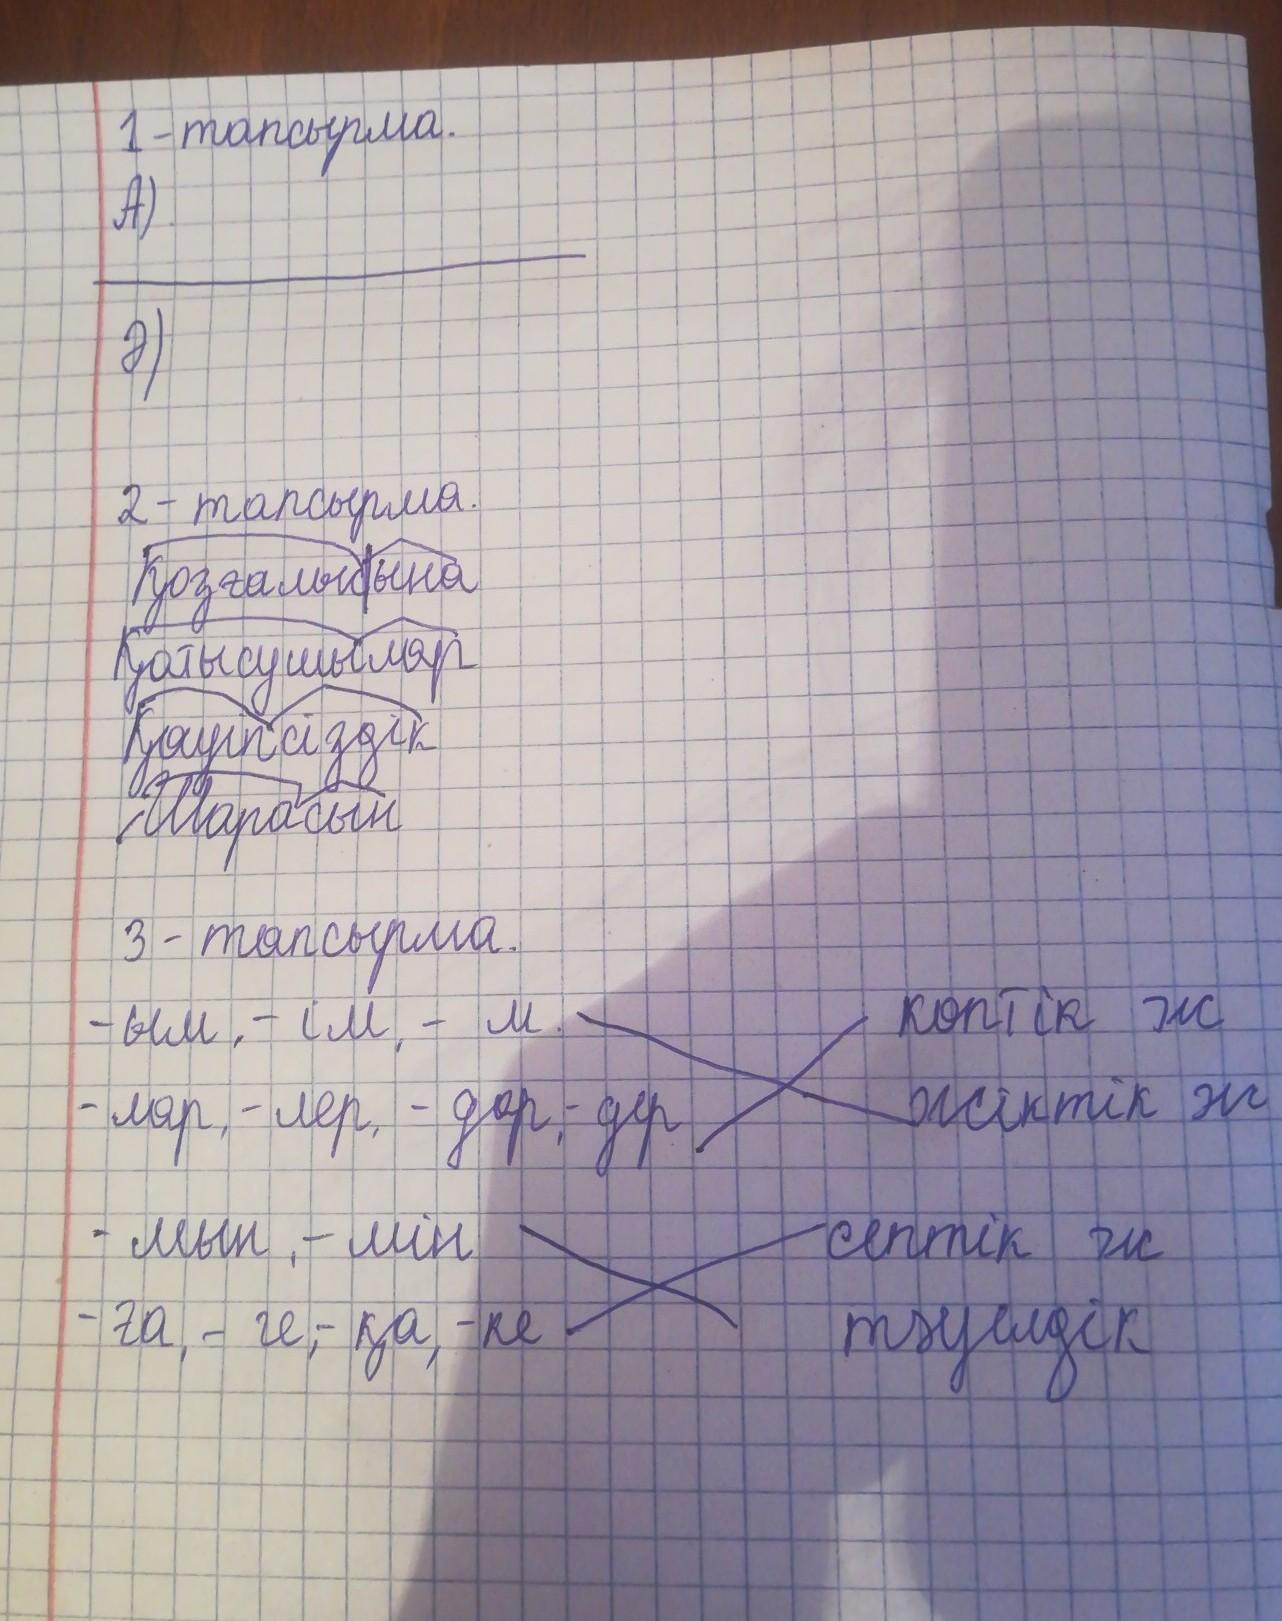 1-тапсырма.
А)
Ә)
2-тапсырма.
Қозғалысына
Қатысушылар
Қауіпсіздік
Шарасын
3-тапсырма.
-ым, -ім, - м.
көптік ж
-лар, -лер, -дар, -дер
жіктік ж
-мын, -мін
септік ж
-ға, -ге, -қа, -ке
тәуелдік